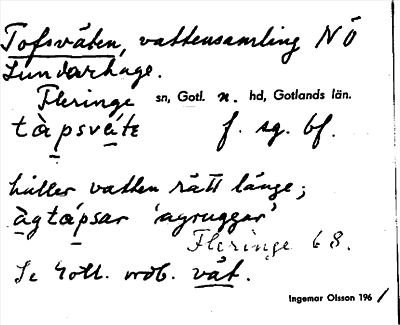 Tofsväten, vattensamling NÖ
Lundarhage.
Fleringe sn, Gotl. n. hd, Gotlands län.
tàpsvęite f. sg. bf.
håller vatten rätt länge;
àgtápsar 'agruggar'
Fleringe 68.
Se Gotl. ordb. vät.
Ingemar Olsson 1961